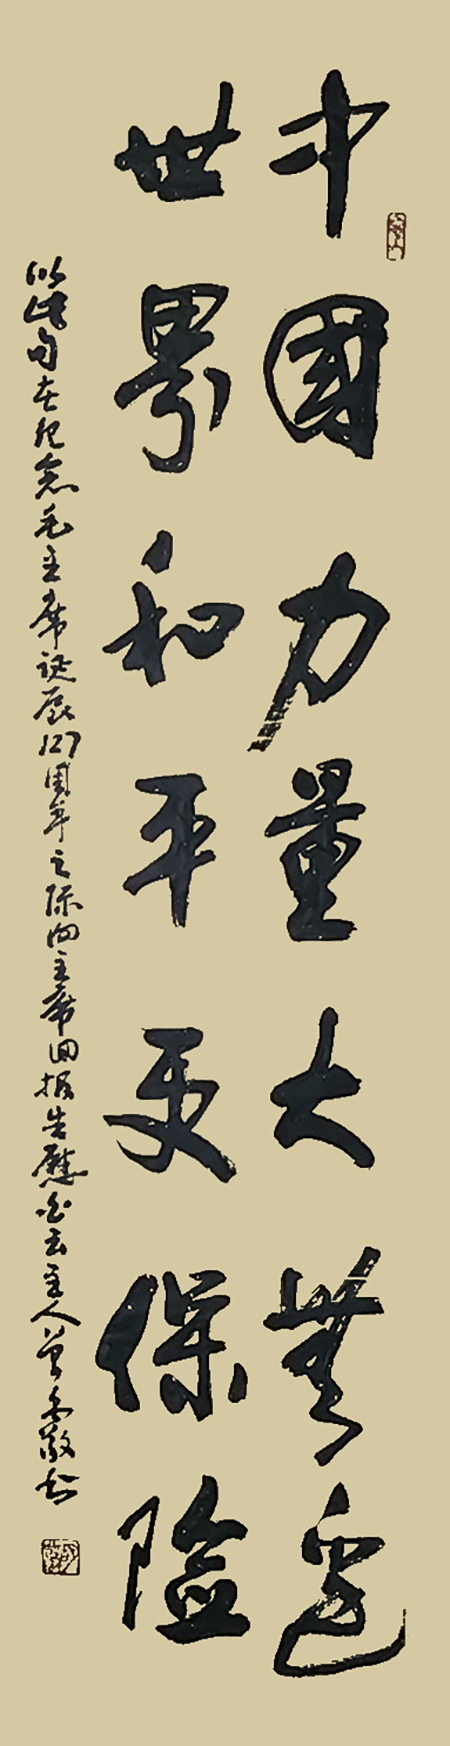 中國力量大無邊
世界和平更保險
以此句在紀念毛主席誕辰127周年之际向主席回报告慰 白云主人 書